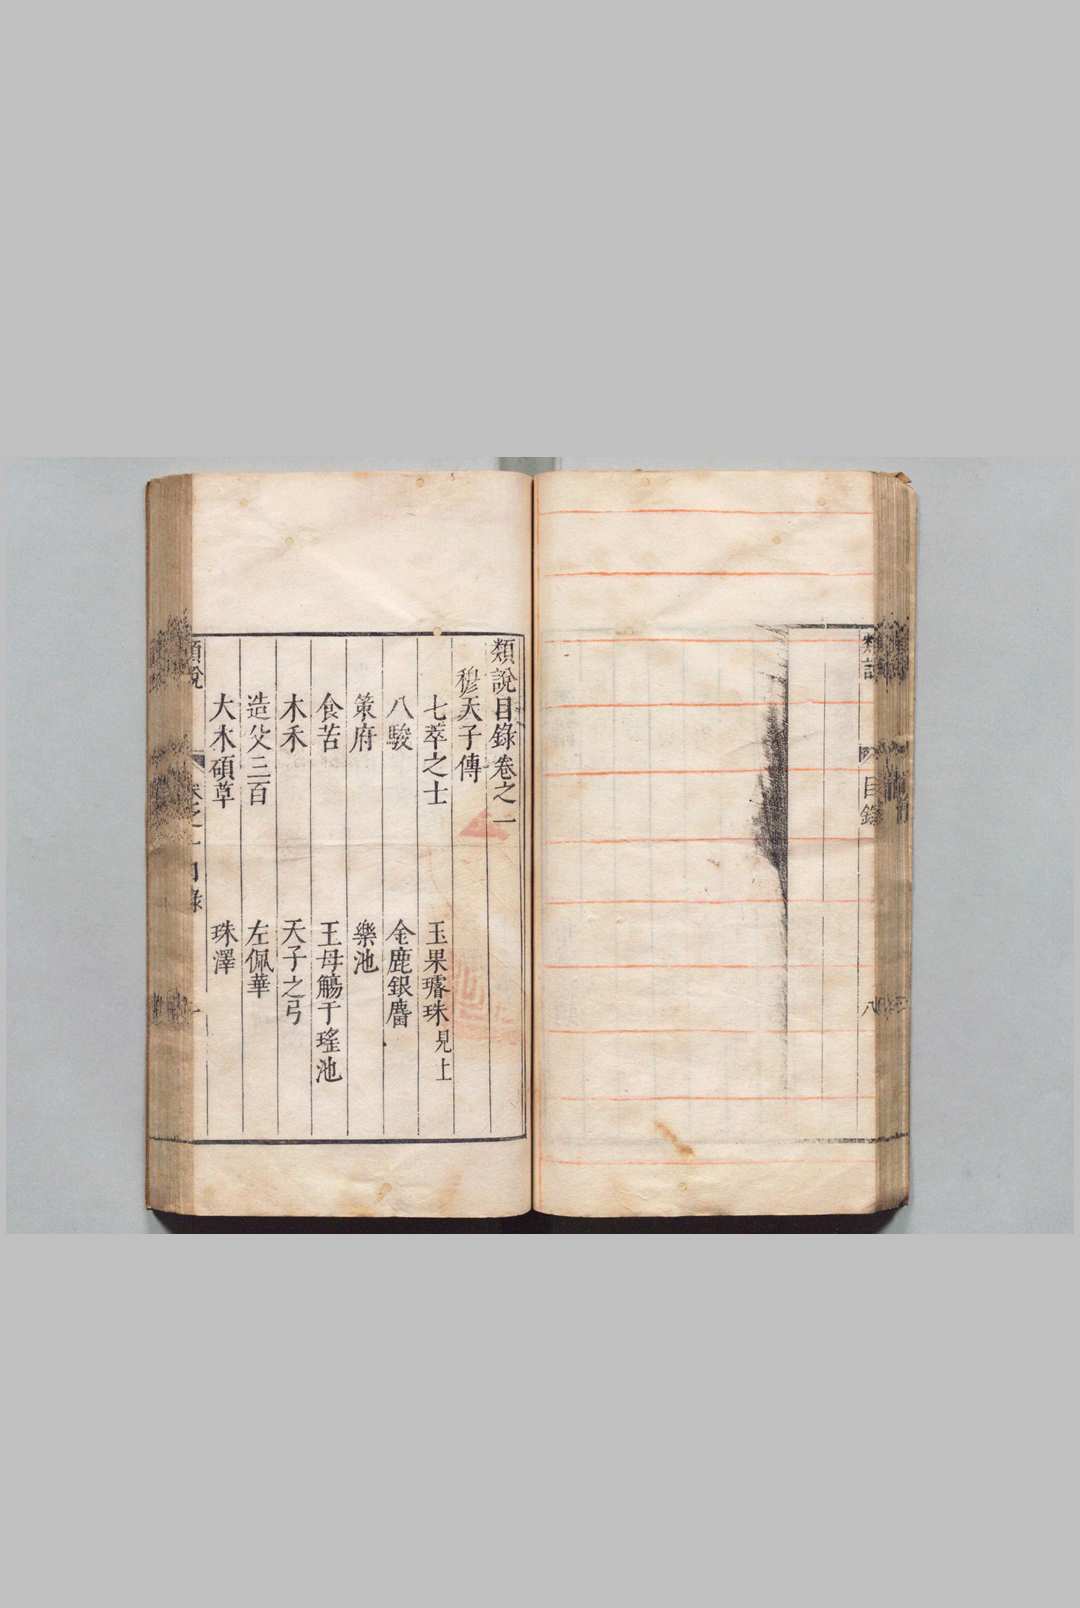 類說
目錄
八
類說目錄卷之一
穆天子傳
七萃之士　玉果璿珠見上
八駿　金鹿銀麕
策府　樂池
食苦　王母觴于瑤池
木禾　天子之弓
造父三百　左佩華
大木碩草　珠澤
類說
卷之一目錄
一